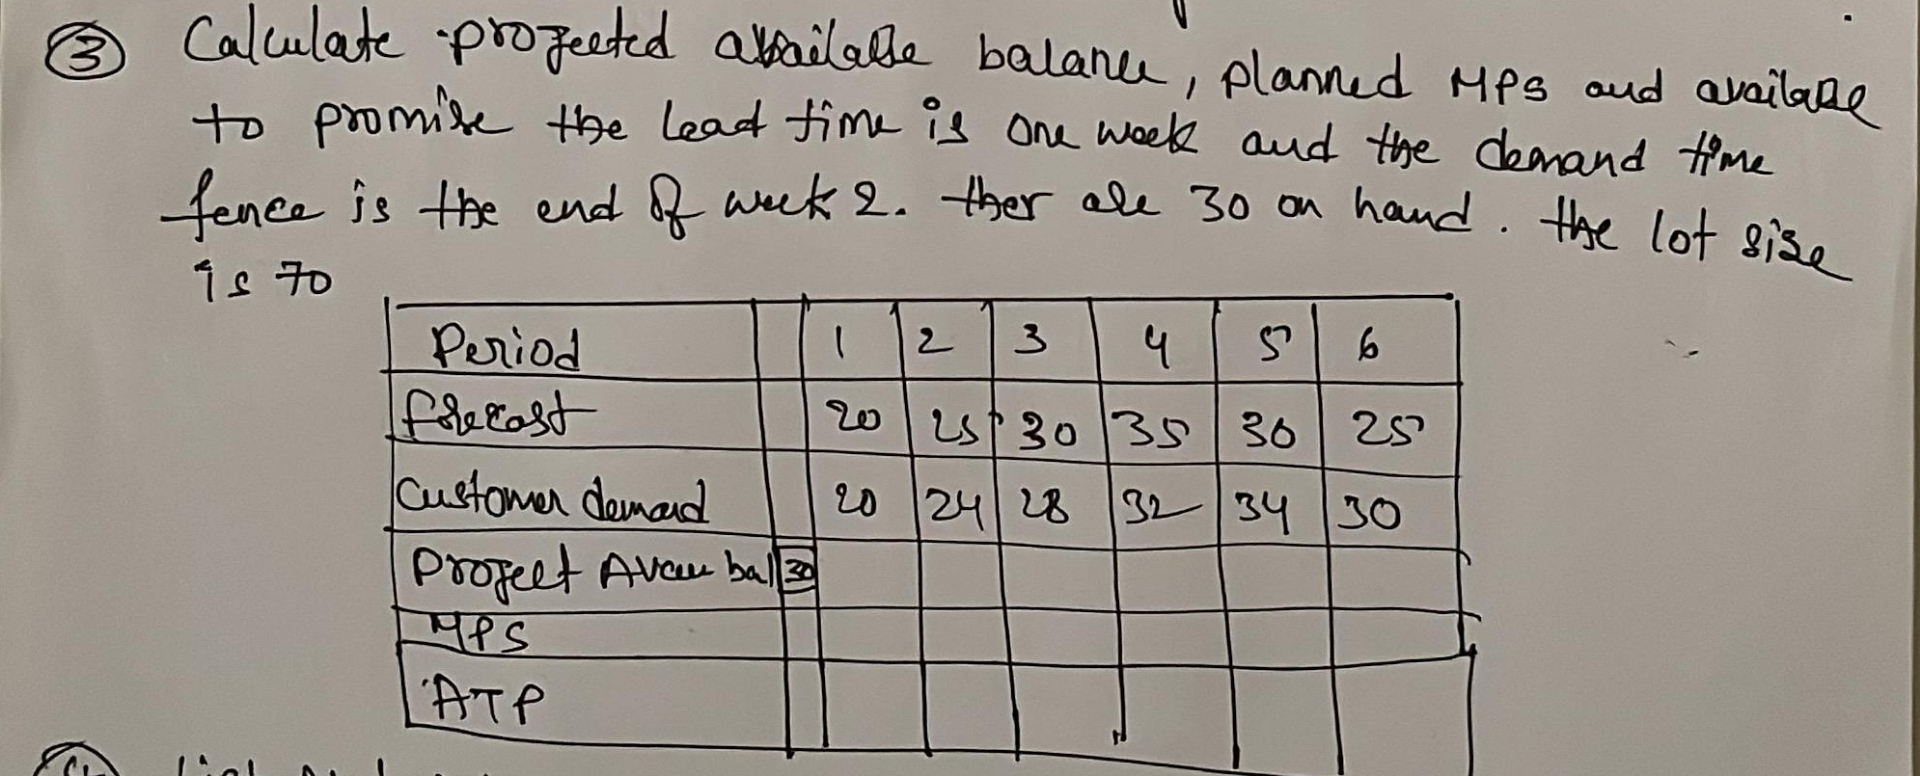 3 Calculate projected available balance, planned MPS and available
to promise the lead time is one week and the demand time
fence is the end of week 2. ther are 30 on hand. the lot size
is 70
Period 1 2 3 4 5 6
forecast 20 25 30 35 30 25
Customer demand 20 24 28 32 34 30
Project bal 30
MPS
ATP